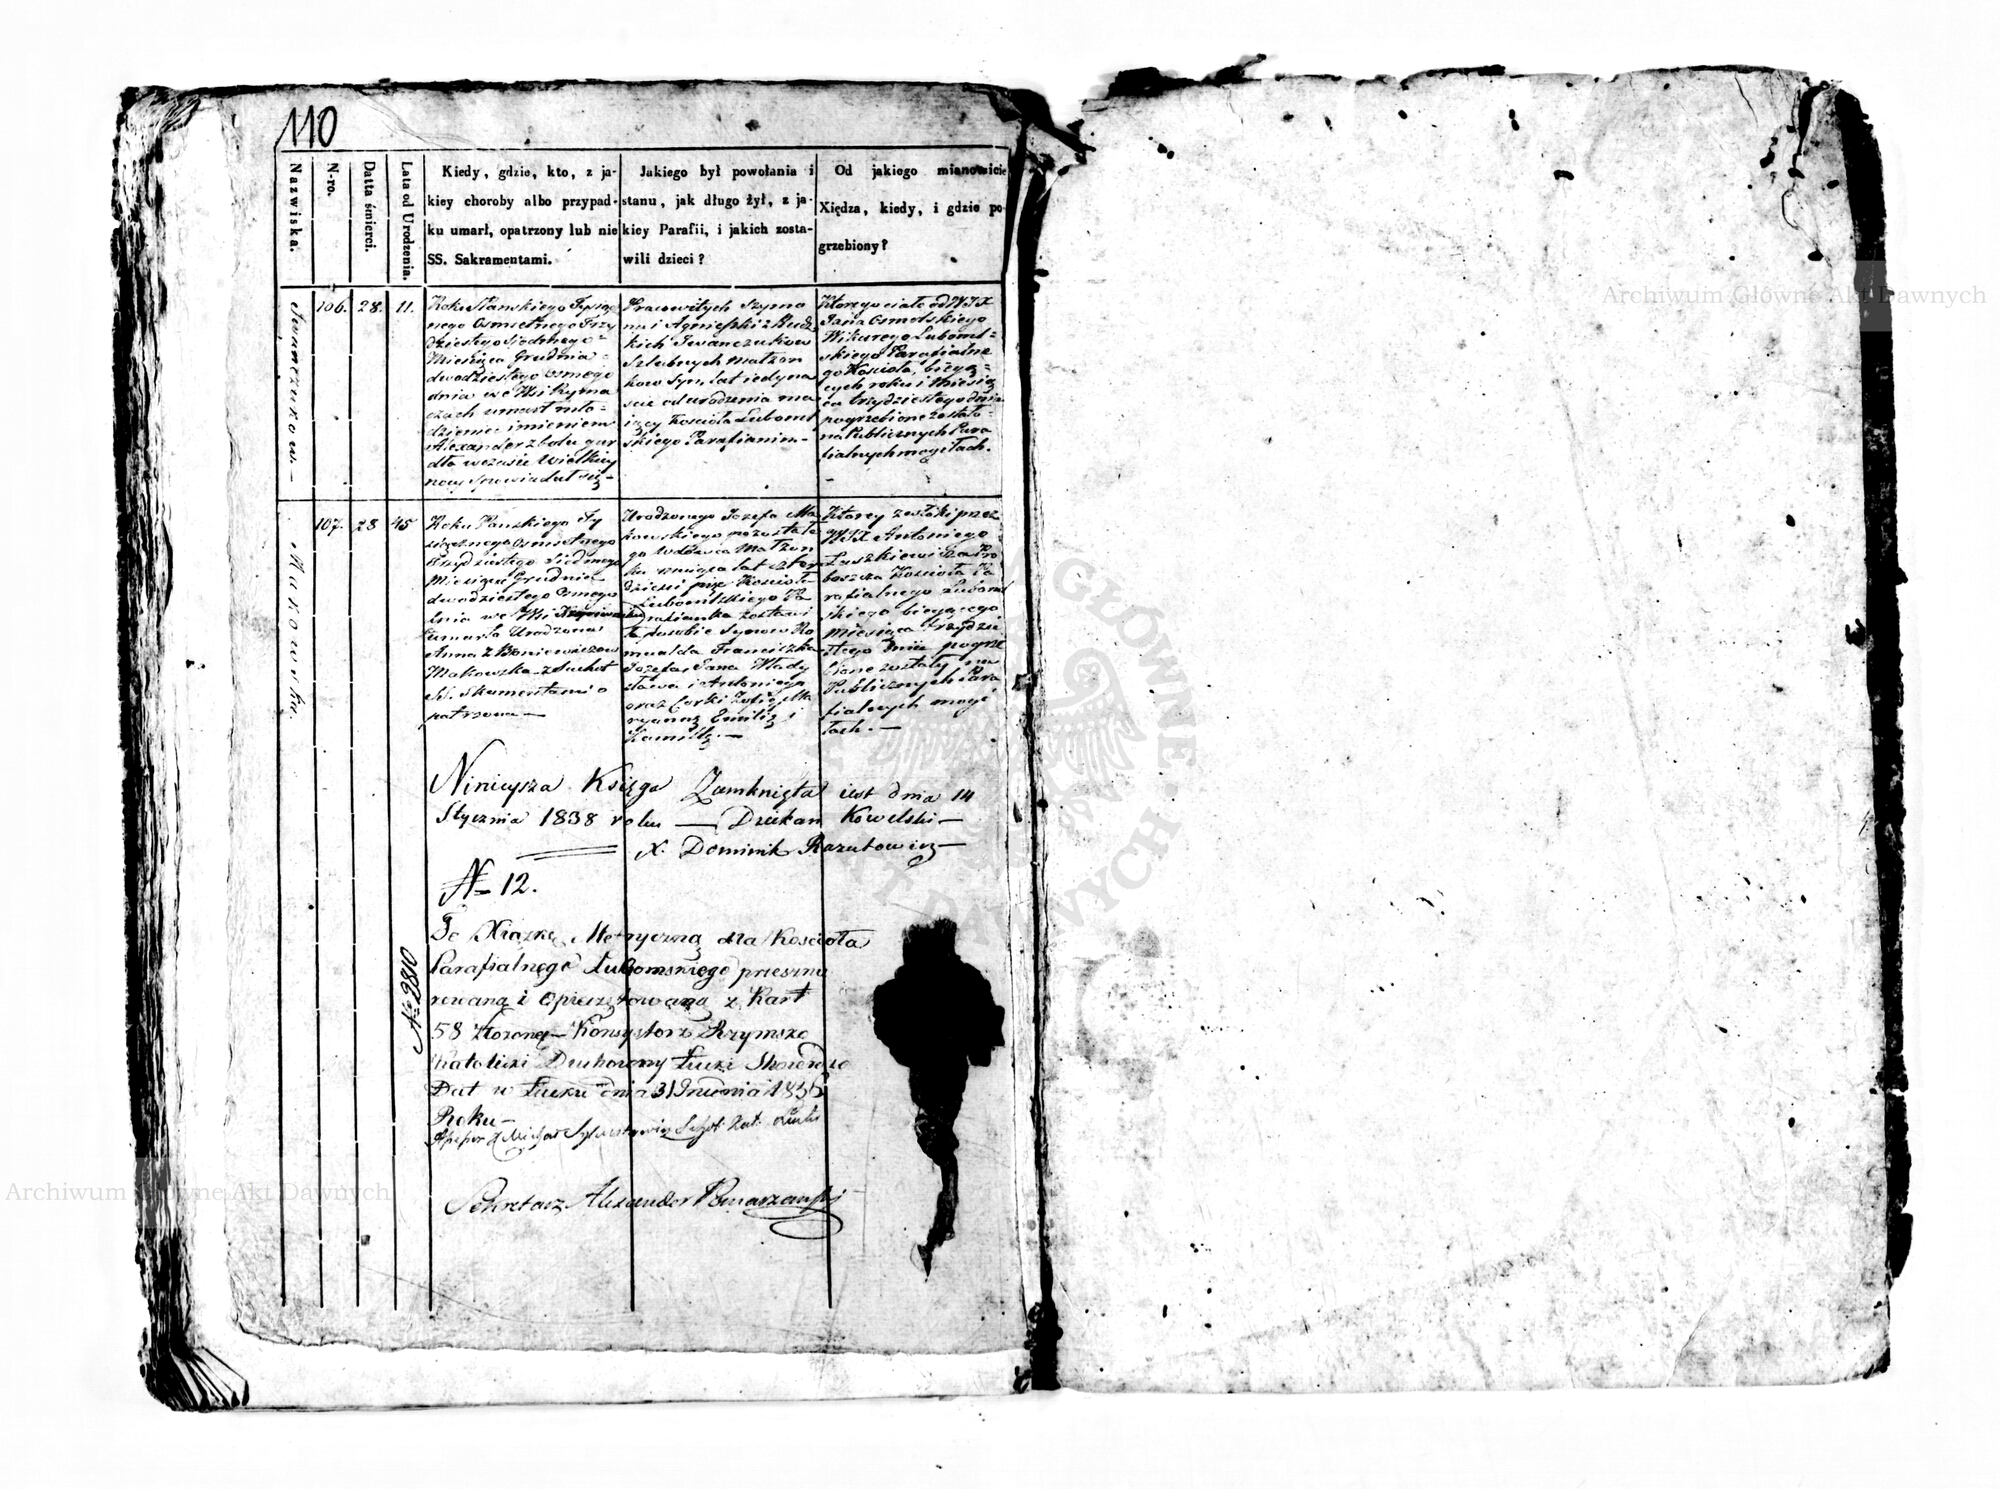 110
Nazwiska.
N-ro.
Datta śmierci.
Lata od Urodzenia.
Kiedy, gdzie, kto, z ja-
kiey choroby albo przypad-
ku umarł, opatrzony lub nie
SS. Sakramentami.
Jakiego był powołania i
stanu, jak długo żył, z ja-
kiey Parafii, i jakich zosta-
wili dzieci?
Od jakiego mianowicie
Xiędza, kiedy, i gdzie po-
grzebiony?
Iwanczukow.
106.
28.
11.
Roku Pańskiego Tysią
cznego Osmsetnego Trzy
dziestego Siodmego
Miesiąca Grudnia
dwudziestego osmego
dnia we Wsi Ryma
czach umarł mło-
dzieniec imieniem
Alexander z bolu gar
dła wczasie Wielkiey
nocy spowiadał się
Pracowitych Szymo
na i Agnieszki z Rudz
kich Iwanczukow
Szlubnych Małżon
kow Syn, lat iedyna
scie od urodzenia ma
iący Kościoła Luboml
skiego Parafianin.
Ktorego ciało od WJX
Jana Osmolskiego
Wikarego Luboml-
skiego Parafialne
go Kościoła, bieżą-
cych roku i Miesią
ca trzydziestego dnia
pogrzebione zostało
na Publicznych Para
fialnych mogiłach.
Makowska.
107.
28
45
Roku Pańskiego Ty
siącznego Osmsetnego
Trzydziestego Siodmego
Miesiąca Grudnia
dwudziestego Osmego
dnia we Wsi
umarła Urodzona
Anna z Boniewiczow
Makowska z Suchot
SS. Skramentami o
patrzona
Urodzonego Jozefa Ma
kowskiego pozostałe
go Wdowca Małżon
ka maiąca lat czter
dzieści pięć Kościoła
Lubomlskiego Pa
rafianka zostawi
ła po sobie Synow Ro
mualda Franciszka
Jozefa, Jana Włady
sława i Antoniego
oraz Corki
Emilię i
Kamillę.
Ktorey zwłoki przez
WJX Antoniego
Łuszkiewicza Pro
boszcza Kościoła Pa
rafialnego Luboml
skiego bieżącego
miesiąca trzydzie
stego Dnia pogrze
bione zostały na
Publicznych Para
fialnych mogi
łach.
Ninieysza Księga Zamknięta iest dnia 14
Stycznia 1838 roku — Dziekan Kowelski
X. Dominik Razutowicz
N 12.
Te Xiążkę Metryczną dla Kościoła
Parafialnego Lubomskiego przesznu
rowaną i opieczętowaną z Kart
58 złożoną — Konsystorz Rzymsko
Katolicki Duchowny Łucki
Dat w Łucku dnia 31 Grudnia 1836
Roku
N 2810
Sekretarz Alexander Pomarzański
Archiwum Główne Akt Dawnych
Archiwum Główne Akt Dawnych